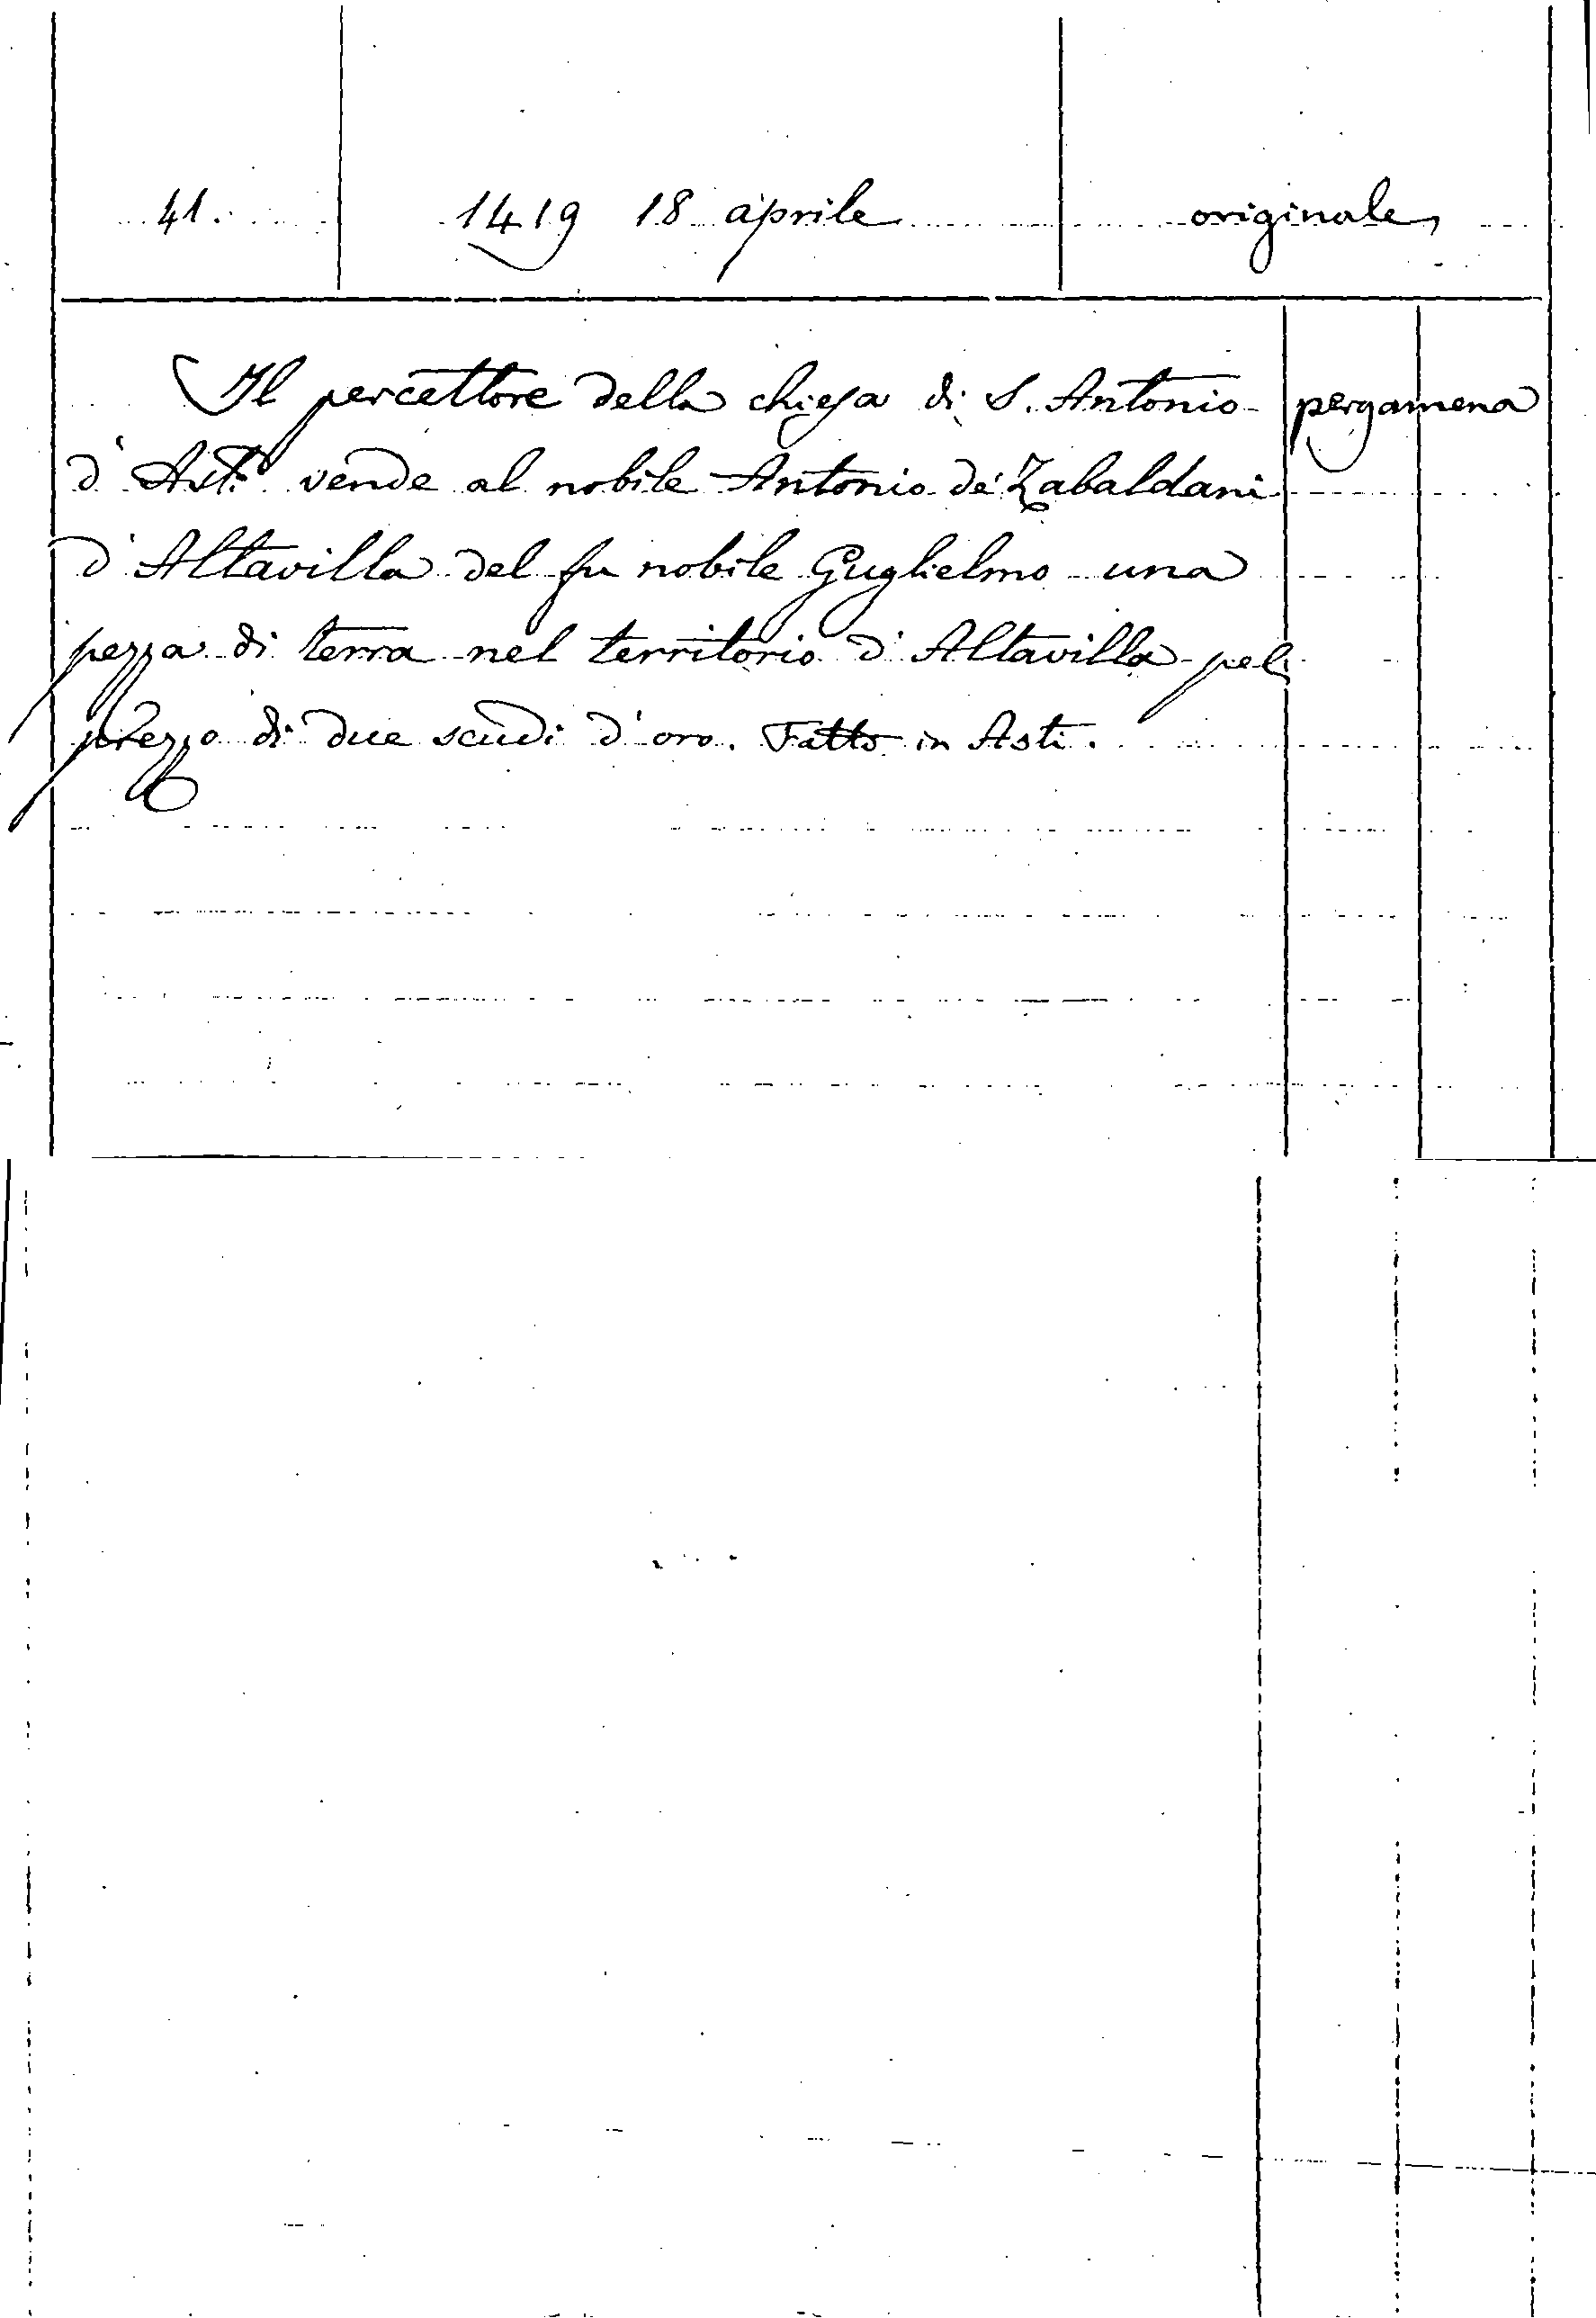 41. 1419 18 aprile originale
Il percettore della chiesa di S. Antonio pergamena
d'Asti vende al nobile Antonio de' Zabaldani
d'Altavilla del fu nobile Guglielmo una
pezza di terra nel territorio d'Altavilla pel
prezzo di due scudi d'oro. Fatto in Asti.